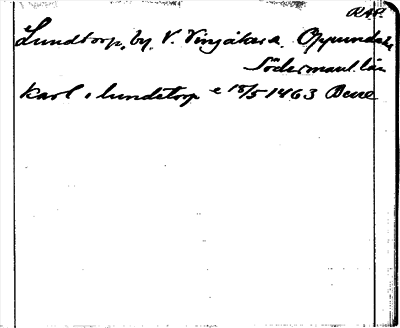 RAP.
Lundtorp, by, V. Vingåkers, Oppunda hd
Södermanl. län
Karl i lundetorp e 15/5 1463 Bene